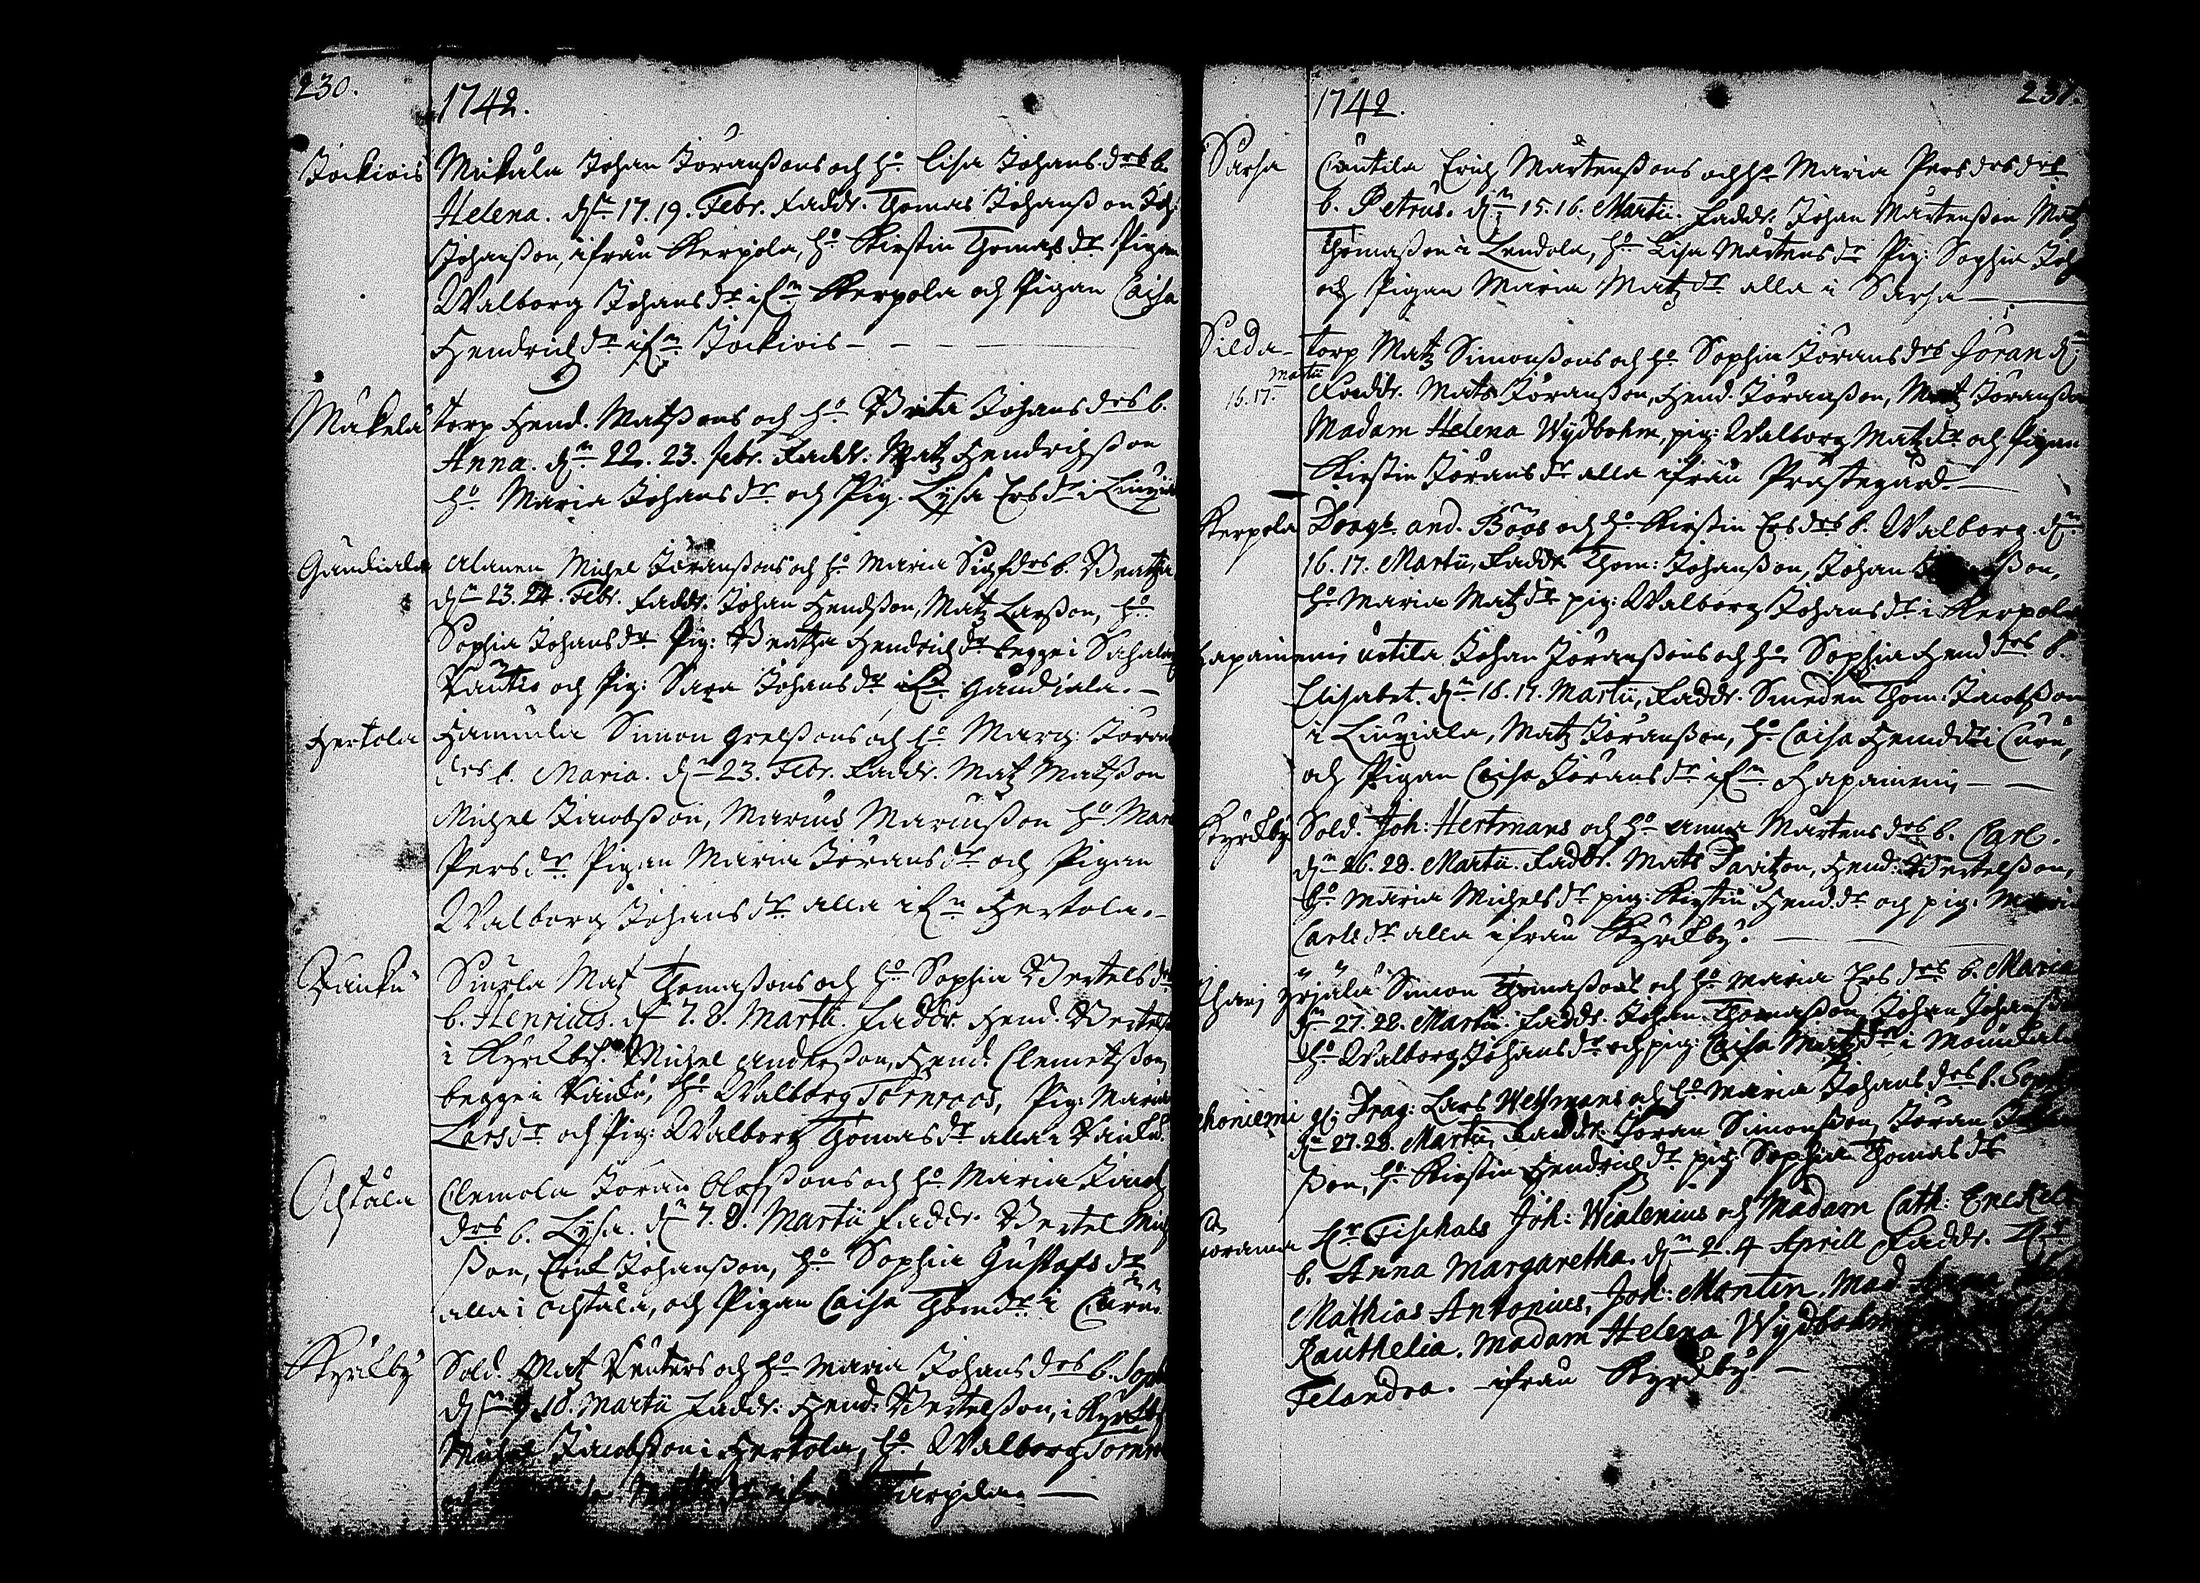 230.
1742.
Jockiois Mickala Johan Jöranßons och h:o Lisa Johans drs b.
Helena. d:n 17. 19. Febr. Faddr. Thomas Johanßon Joh:
Johanßon, ifrån Kerpola, h:o Kirstin Thomas dr Pigan
Walborg Johans dr if:n Kerpola och Pigan Caisa
Hendrichs dr if:n Jockiois
Mäkelä torp Hend. Matßons och h:o Brita Johans drs b.
Anna. d:n 22. 23. febr. Faddr. Matz Hendrichßon
h:o Maria Johans dr och Pig. Lysa Ers dr i Liuxiala
Gaudiala Alanen Michel Jöranßons och h:o Maria Sigf drs b. Beatha
d:n 23. 24. Febr. Faddr. Johan Hendßon, Matz Larßon, h:o
Sophia Johans dr Pig: Beatha Hendrichs dr begge i Sahalax
Rautio och Pig: Sara Johans dr if:n Gaudiala.
Hertola Hannula Simon Grelßons och h:o Marg: Jöran
drs b. Maria. d:n 23. Febr. Faddr. Matz Matßon
Michel Jacobßon, Marcus Marcusson h:o Mar
Pers dr Pigan Maria Jörans dr och Pigan
Walborg Johans dr alla if:n Hertola.
Raiku Siurla Matz Thomaßons och h:o Sophia Bertels dr
b. Henricus. d:n 7. 8. Martii. Faddr. Hend. Bertelß
i Kyrckby. Michel Anderßon, Hend. Clemetßon
begge i Raiku, h:o Walborg Törnroos, Pig: Maria
Lars dr och Pig: Walborg Thomas dr alla i Raiku.
Ochtula Clemola Jöran Olofßons och h:o Maria Jacobs
drs b. Lysa. d:n 7. 8. Martii Faddr. Bertel Mich
ßon, Erik Johanßon, h:o Sophia Gustafs dr
alla i Ochtula, och Pigan Caisa Thom dr i
Kyrckby Sold. Matz Reuters och h:o Maria Johans drs b. Soph
d:n 9 10. Martii Faddr. Hend. Bertelßon, i Kyrckby
Michel Jacobßon i Hertola, h:o Walborg Törnr
och
231.
1742.
Sarsa Cautila Erich Mårtenßons och h:o Maria Pers drs
b. Petrus. d:n 15. 16. Martii. Faddr. Johan Mårtenßon Matz
Thomaßon i Lendola, h:o Lisa Mårtens dr Pig: Sophia Joh
och Pigan Maria Matz dr alla i Sarsa
Silda- torp Matz Simonßons och h:o Sophia Jörans drs Jöran d:n
16. 17. Martii Faddr. Mats Jöranßon, Hend. Jöranßon, Matz Jöranßon
Madam Helena Wydbohm, pig: Walborg Matz dr och Pigan
Kirstin Jörans dr alla ifrån Prästegård.
Kerpola And. Böös och h:o Kirstin Ers drs b. Walborg. d:n
16. 17. Martii, Faddr. Thom: Johanßon, Johan
h:o Maria Matz dr pig: Walborg Johans dr i Kerpola
Hapaniemi Uotila Johan Jöranßons och h:o Sophia Hend drs b.
Elisabet. d:n 16. 17. Martii, Faddr. Smeden Thom: Jacobßon
i Liuxiala, Matz Jöranßon, h:o Caisa Hend dr i
och Pigan Caisa Jörans dr if:n Hapaniemi
Kyrckby Sold. Joh: Hertmans och h:o Anna Mårtens drs b. Carl.
d:n 26. 28. Martii. Faddr. Mats Davitzon, Hend: Bertelßon,
h:o Maria Michels dr pig: Kirstin Hend. dr och pig. Maria
Carls dr alla ifrån Kyrckby.
Yrjälä Simon Thomaßons och h:o Maria Ers drs b. Maria
d:n 27. 28. Martii. Faddr. Johan Thomaßon, Johan Johanßon
h:o Walborg Johans dr och pig: Caisa Matz dr i
Drag: Lars Wethmans och h:o Maria Johans drs b. Soph
d:n 27. 28. Martii, Faddr: Jöran Simonßon, Jöran
ßon, h:o Kirstin Hendrichs dr pig: Sophia Thomas dr
H:r Fischals Joh: Wialenius och Madam Cath: Eneckels
b. Anna Margaretha. d:n 2. 4 Aprill Faddr. H:r
Mathias Antonius, Joh: Montin, Mad. Anna
Rauthelia. Madam Helena Wydbohm
Felandra. ifrån Kyrckby.